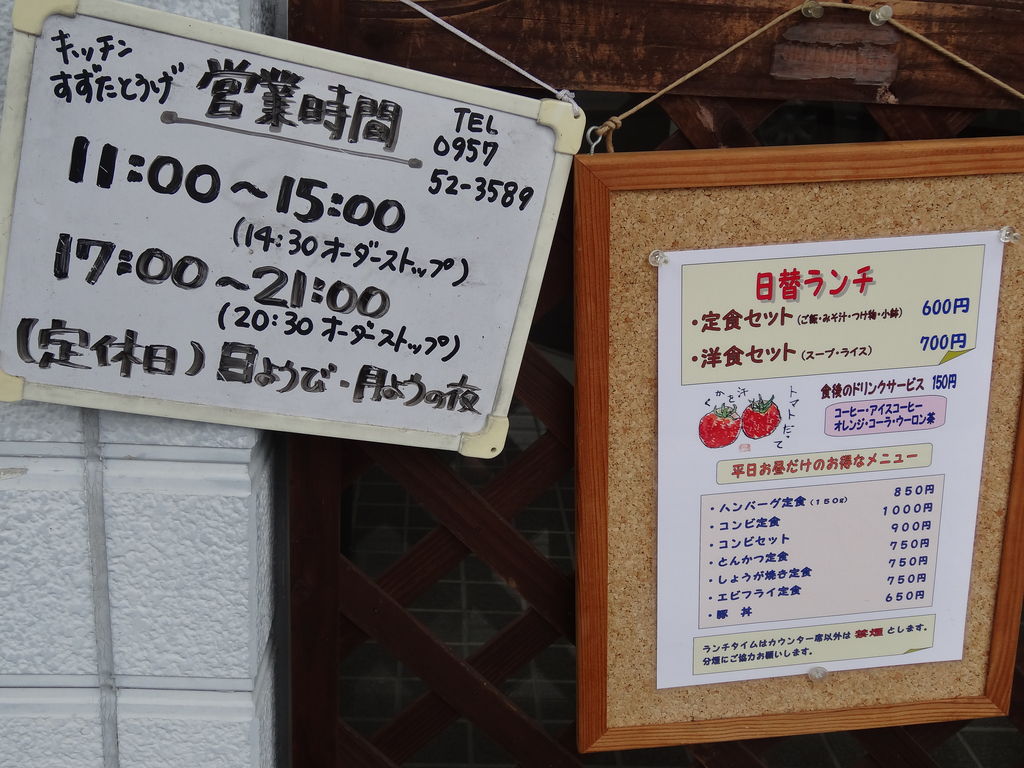 キッチン
すずたとうげ
営業時間
TEL
0957
52-3589
11:00〜15:00
(14:30 オーダーストップ)
17:00〜21:00
(20:30 オーダーストップ)
(定休日)日ようび・月ようの夜
日替ランチ
・定食セット(ご飯・みそ汁・つけ物・小鉢) 600円
・洋食セット(スープ・ライス) 700円
食後のドリンクサービス 150円
コーヒー・アイスコーヒー
オレンジ・コーラ・ウーロン茶
トマトだって
汗をかく
平日お昼だけのお得なメニュー
・ハンバーグ定食(150g) 850円
・コンビ定食 1000円
・コンビセット 900円
・とんかつ定食 750円
・しょうが焼き定食 750円
・エビフライ定食 750円
・豚 丼 650円
ランチタイムはカウンター席以外は 禁煙 とします。
分煙にご協力お願いします。